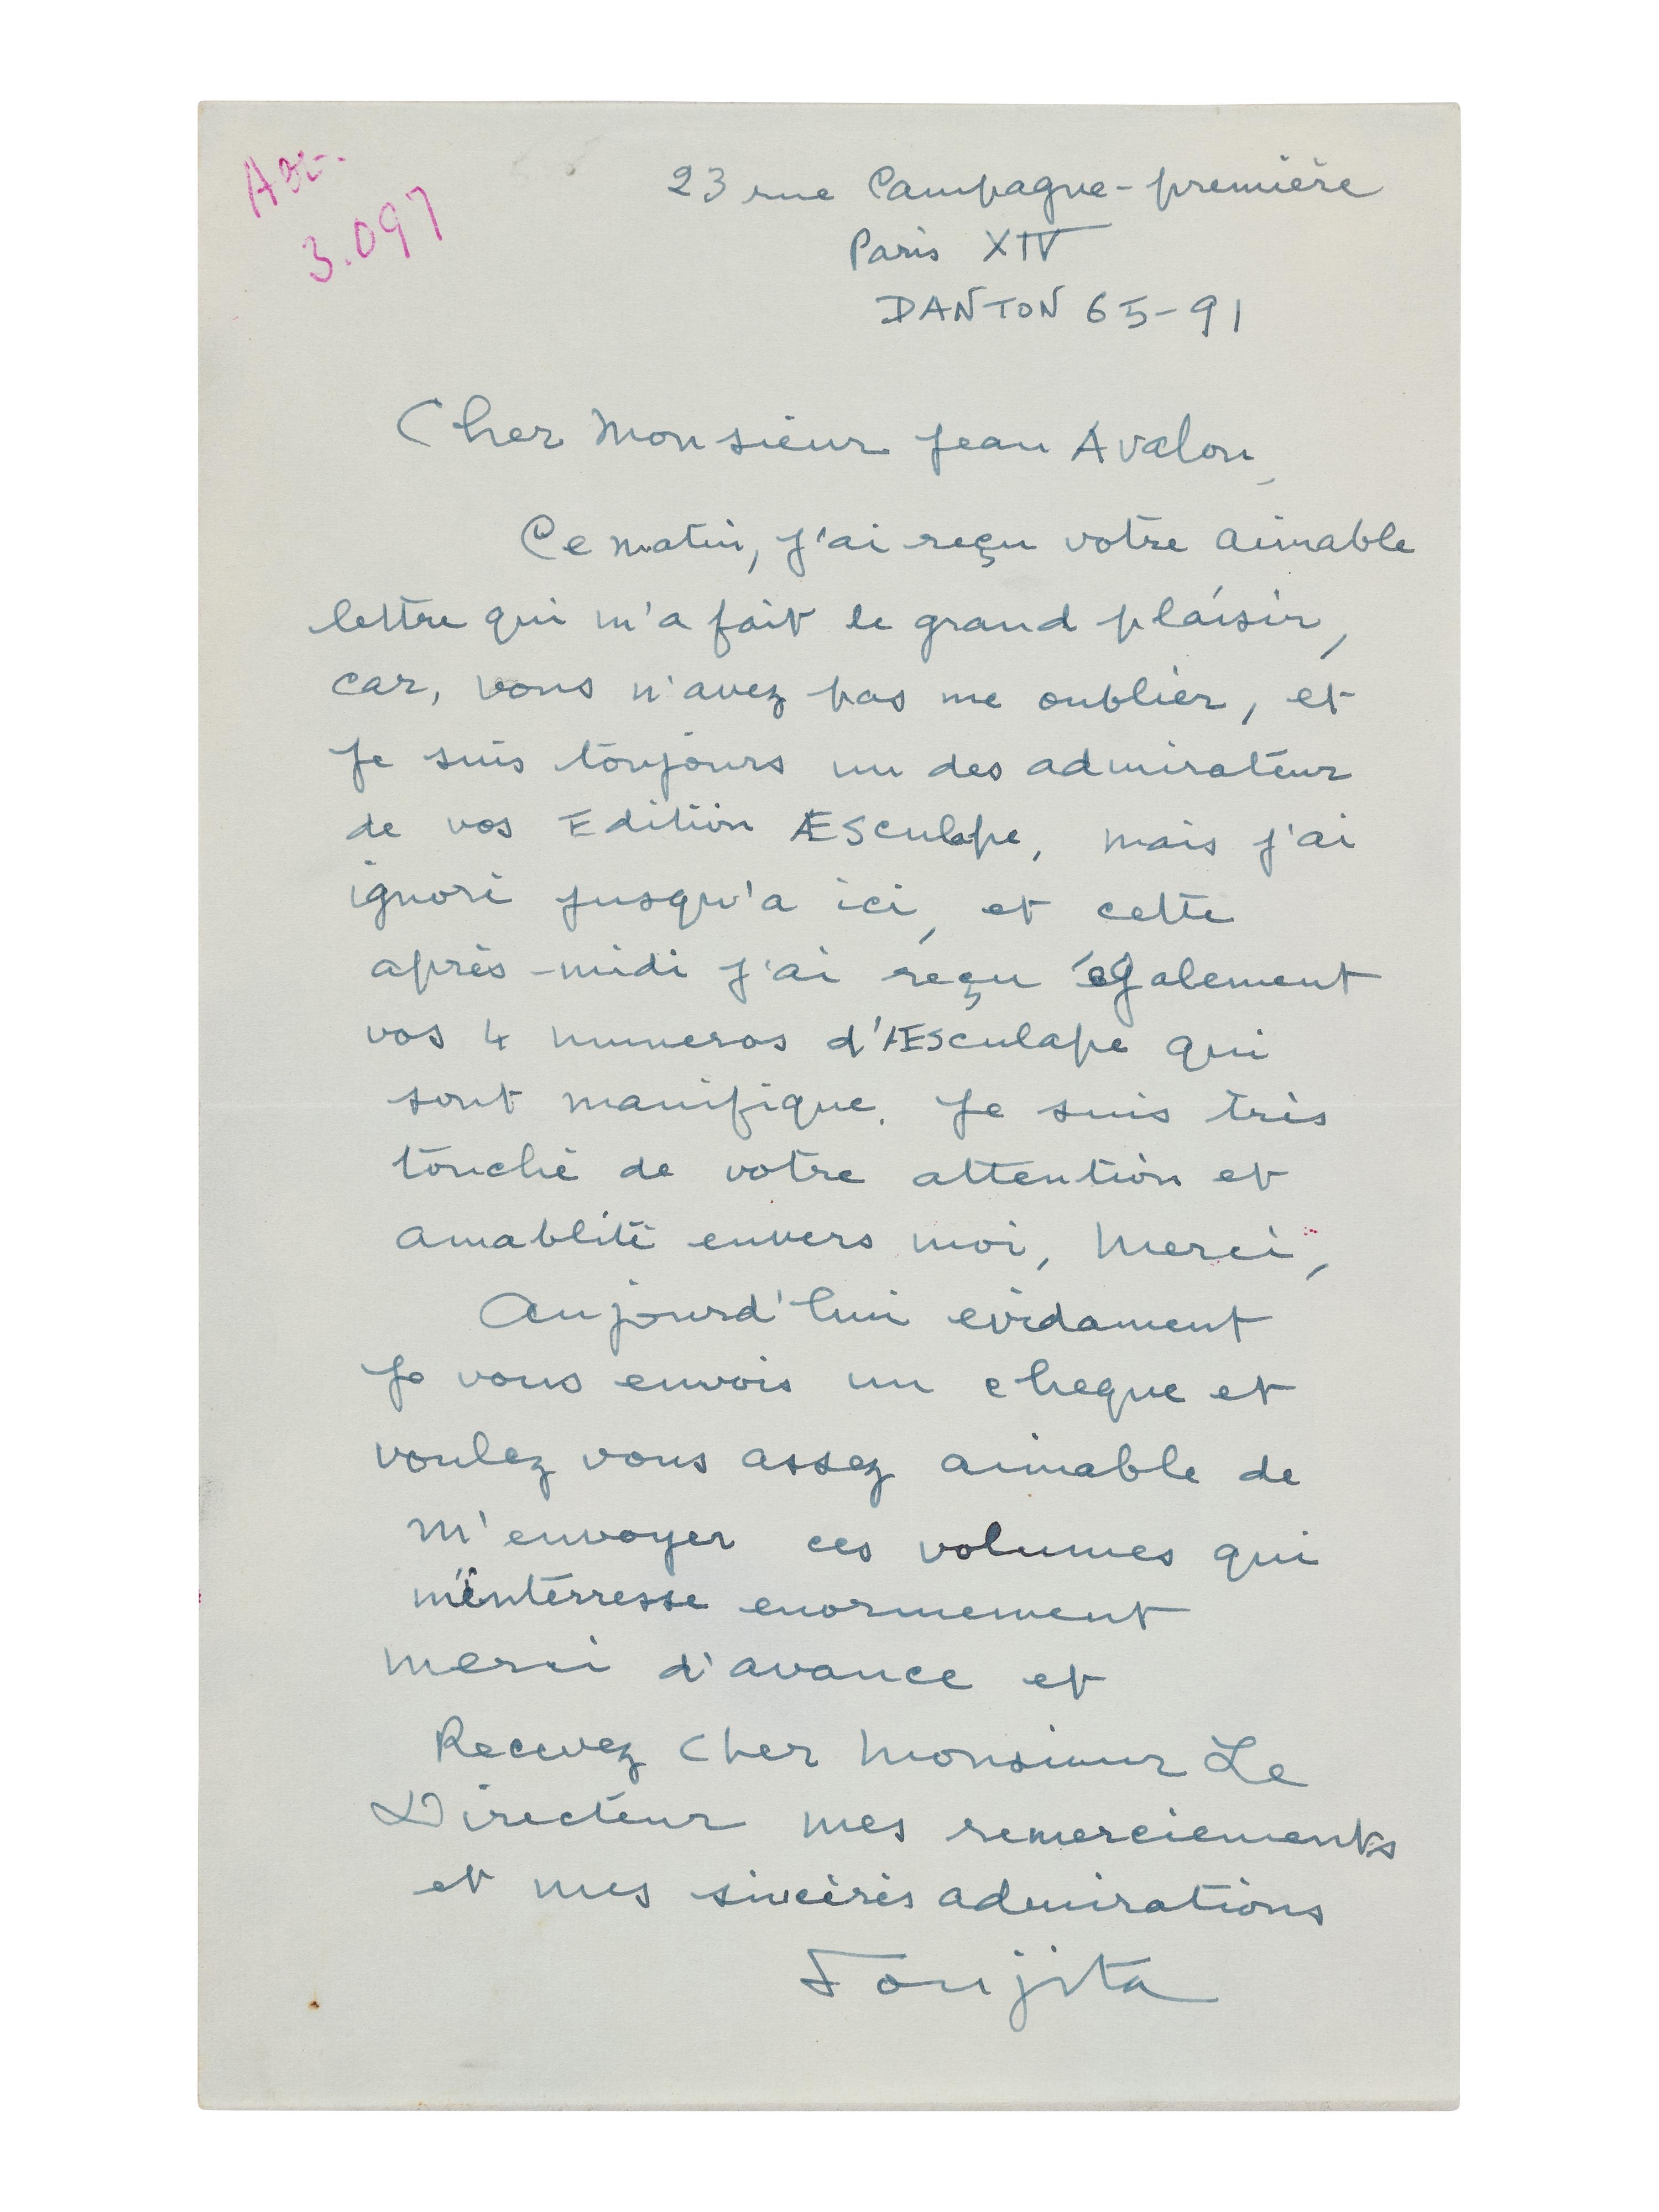 3.097
23 rue Campagne-première
Paris XIV
DANTON 65-91
Cher Monsieur Jean Avalon,
Ce matin, j'ai reçu votre aimable
lettre qui m'a fait le grand plaisir,
car, vous n'avez pas me oublier, et
Je suis toujours un des admirateur
de vos Edition ÆSculape, mais j'ai
ignoré jusqu'a ici, et cette
après-midi j'ai reçu également
vos 4 numeros d'ÆSculape qui
sont manifique. Je suis très
touché de votre attention et
amablité envers moi, Merci,
Aujourd'hui evidament
Je vous envois un cheque et
voulez vous assez aimable de
m'envoyer ces volumes qui
m'intérresse enormement
merci d'avance et
Recevez Cher Monsieur Le
Directeur mes remerciements
et mes sincères admirations
Foujita